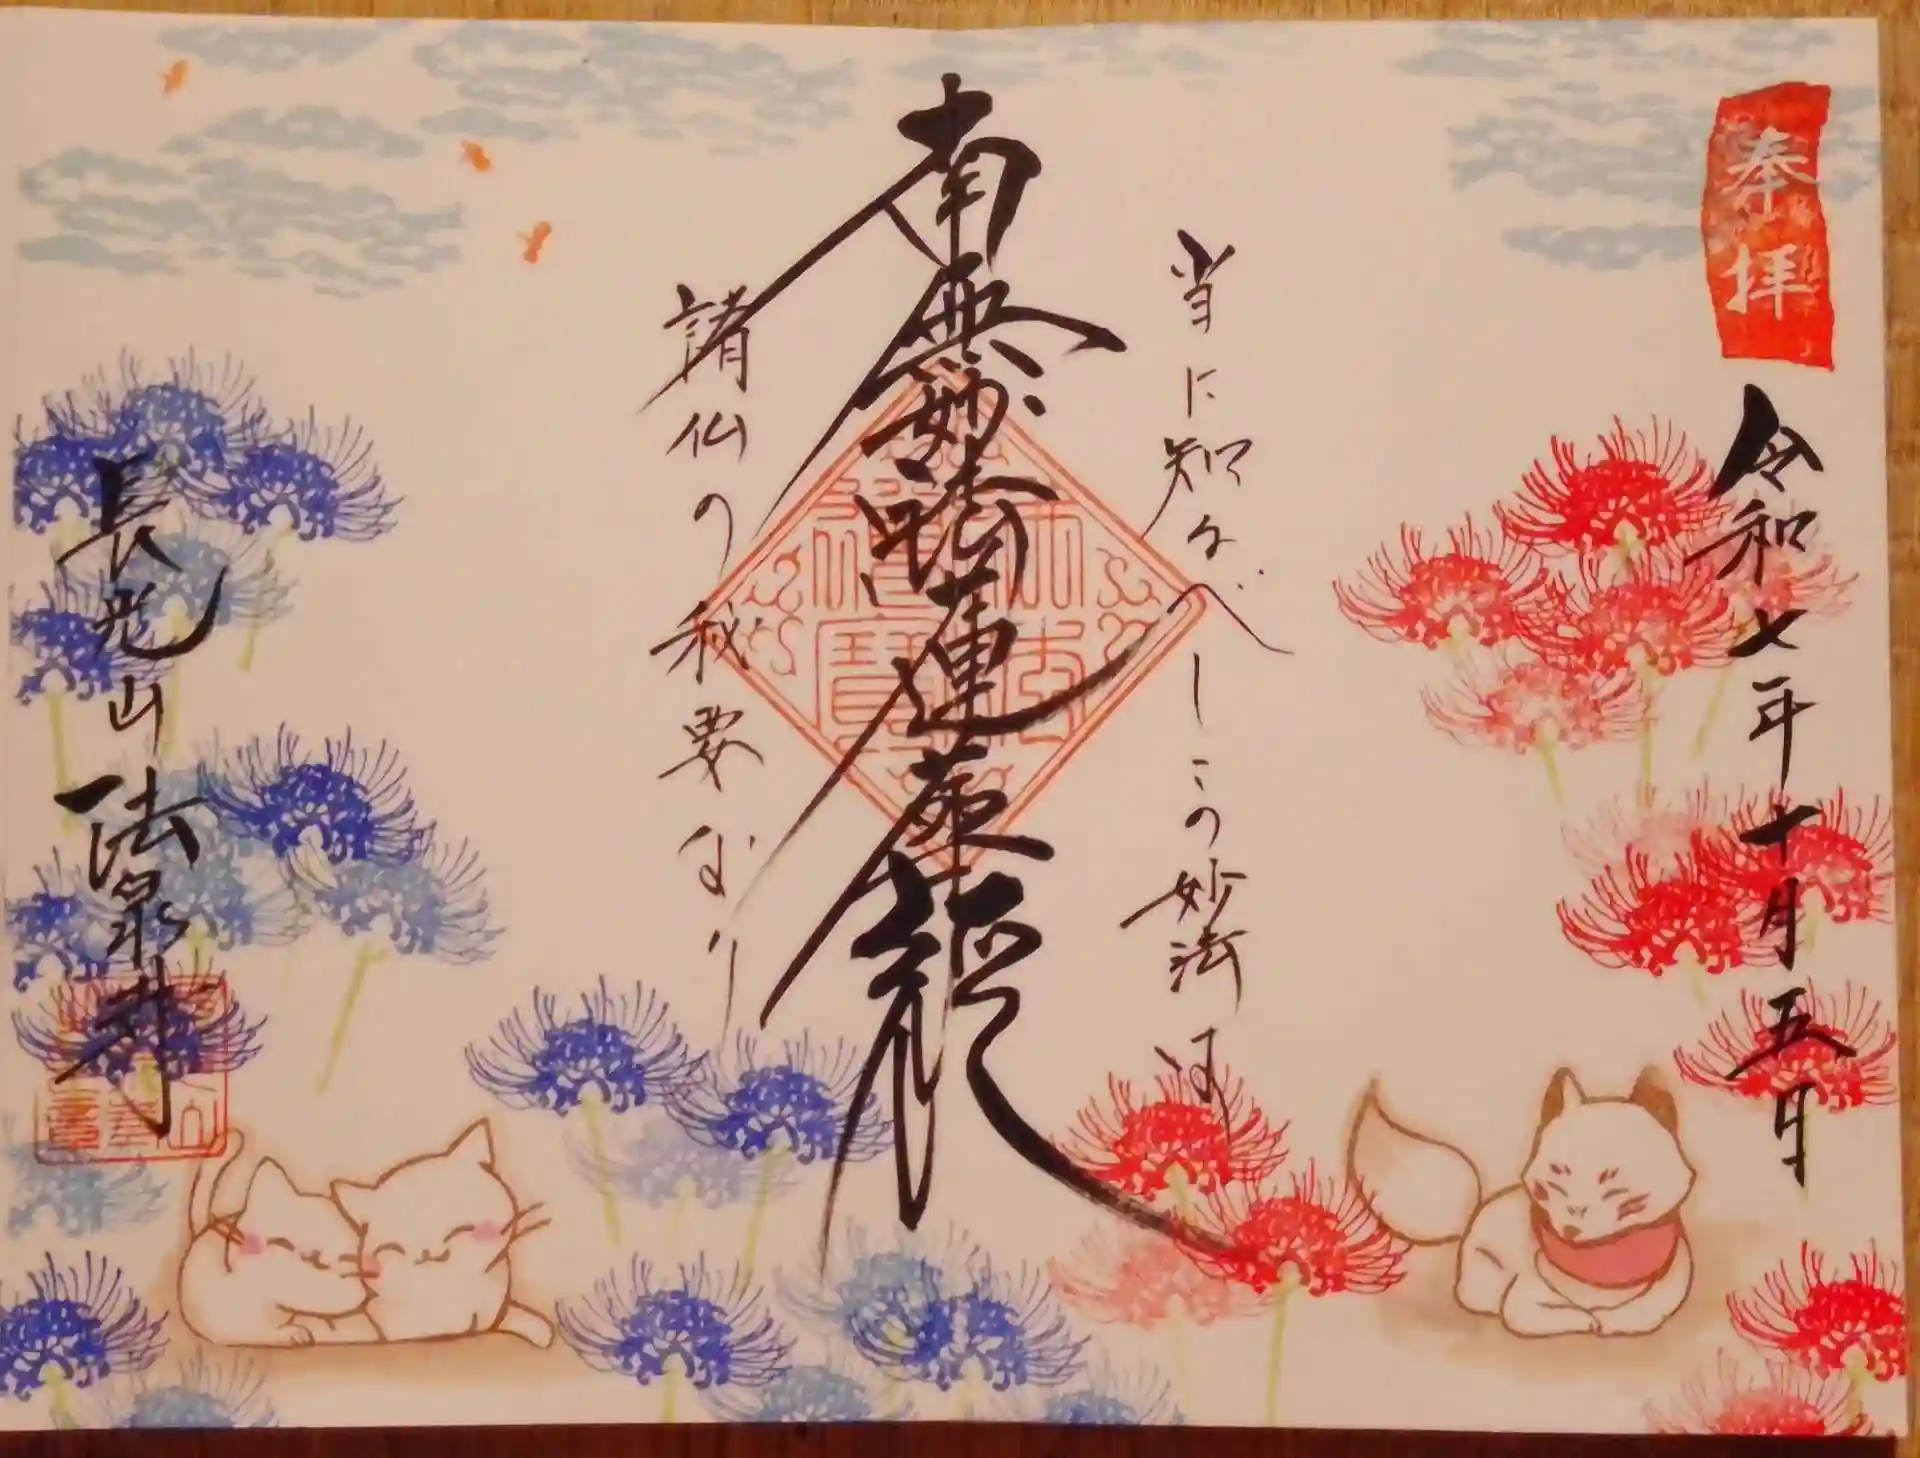 奉拝
令和七年十月五日
当に知るべしこの妙法は
南無妙法蓮華経
諸仏の秘要なり
長光山 法泉寺